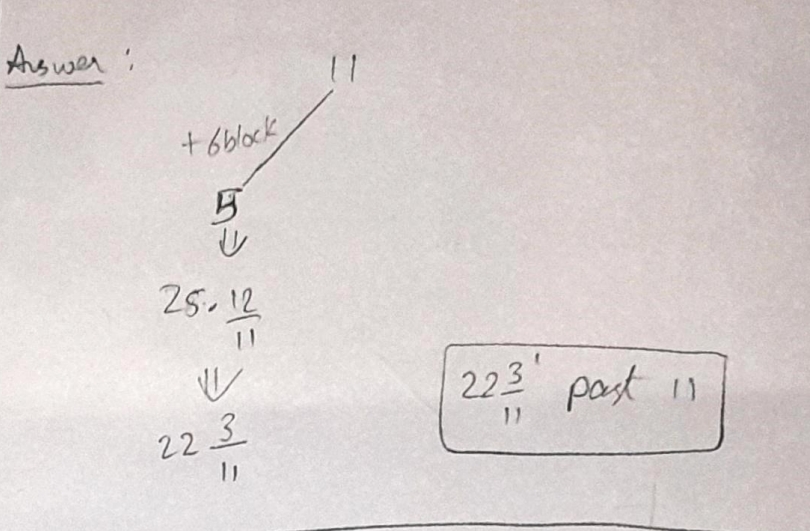 Answer :
11
+ 6 block
5
⇓
25 . 12/11
⇓
22 3/11
22 3/11 ' past 11